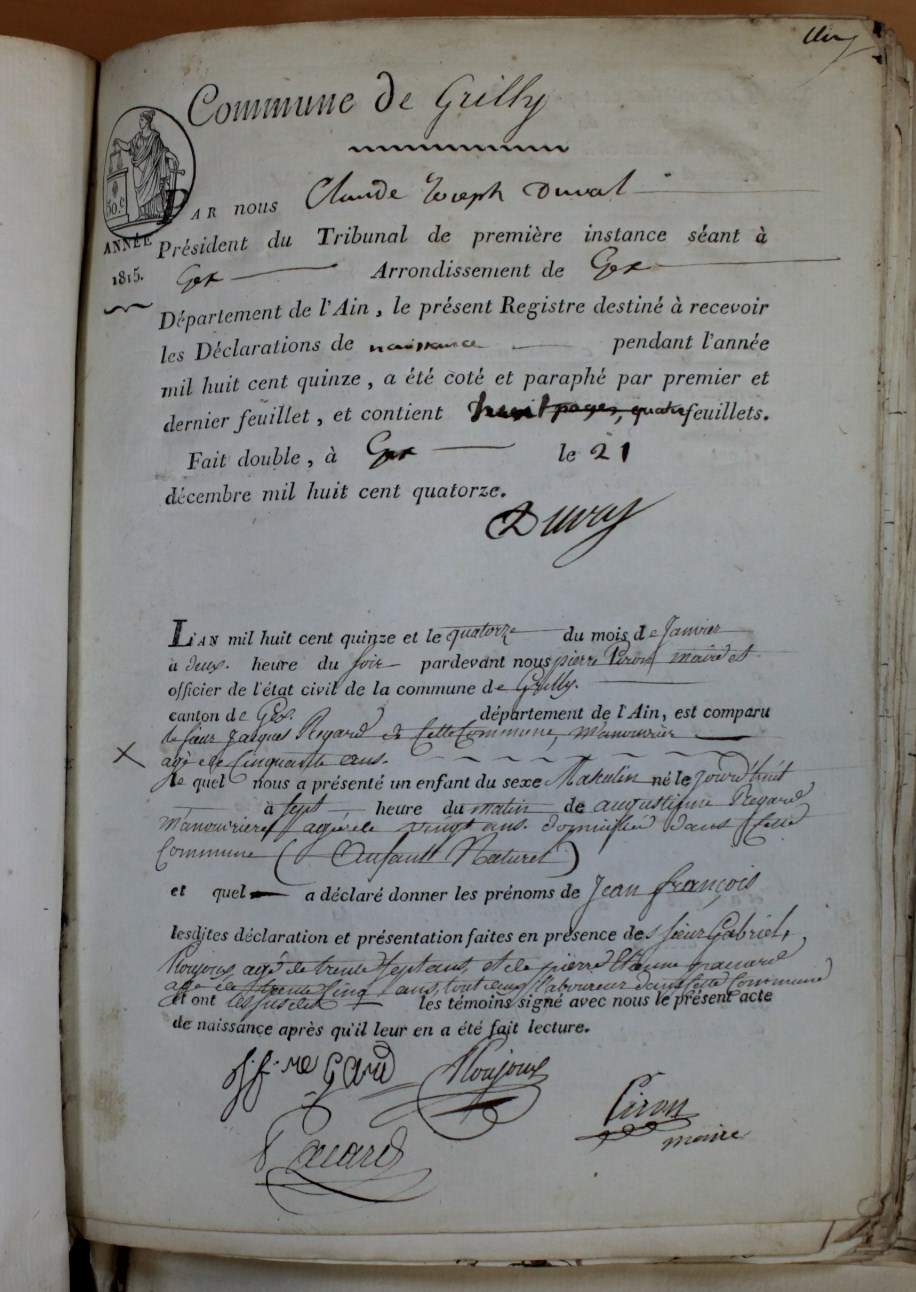 Commune de Grilly
50.c
PAR nous Claude Joseph Duval
ANNÉE
1815.
Président du Tribunal de première instance séant à
Gex Arrondissement de Gex
Département de l'Ain, le présent Registre destiné à recevoir
les Déclarations de naissance pendant l'année
mil huit cent quinze, a été coté et paraphé par premier et
dernier feuillet, et contient huit pages, quatre feuillets.
Fait double, à Gex le 21
décembre mil huit cent quatorze.
Duval
L'AN mil huit cent quinze et le quatorze du mois de Janvier
à deux heure du soir pardevant nous pierre Piron maire et
officier de l'état civil de la commune de Grilly.
canton de Gex. département de l'Ain, est comparu
le sieur Jacques Regard de Cette Commune, Manouvrier
agé de Cinquante ans.
le quel nous a présenté un enfant du sexe Masculin né le jourd'huit
à sept heure du matin de augustine Regard
Manouvriere agée de vingt ans. domicilié dans Cette
Commune ( Enfant Naturel )
et quel a déclaré donner les prénoms de Jean françois
lesdites déclaration et présentation faites en présence des sieur Gabriel,
Roujoux agé de trente sept ans, et de pierre Etienne panard
agé de trente Cinq ans, tout deux laboureur dans Cette Commune
et ont les susdit les témoins signé avec nous le présent acte
de naissance après qu'il leur en a été fait lecture.
Roujoux
Piron
maire